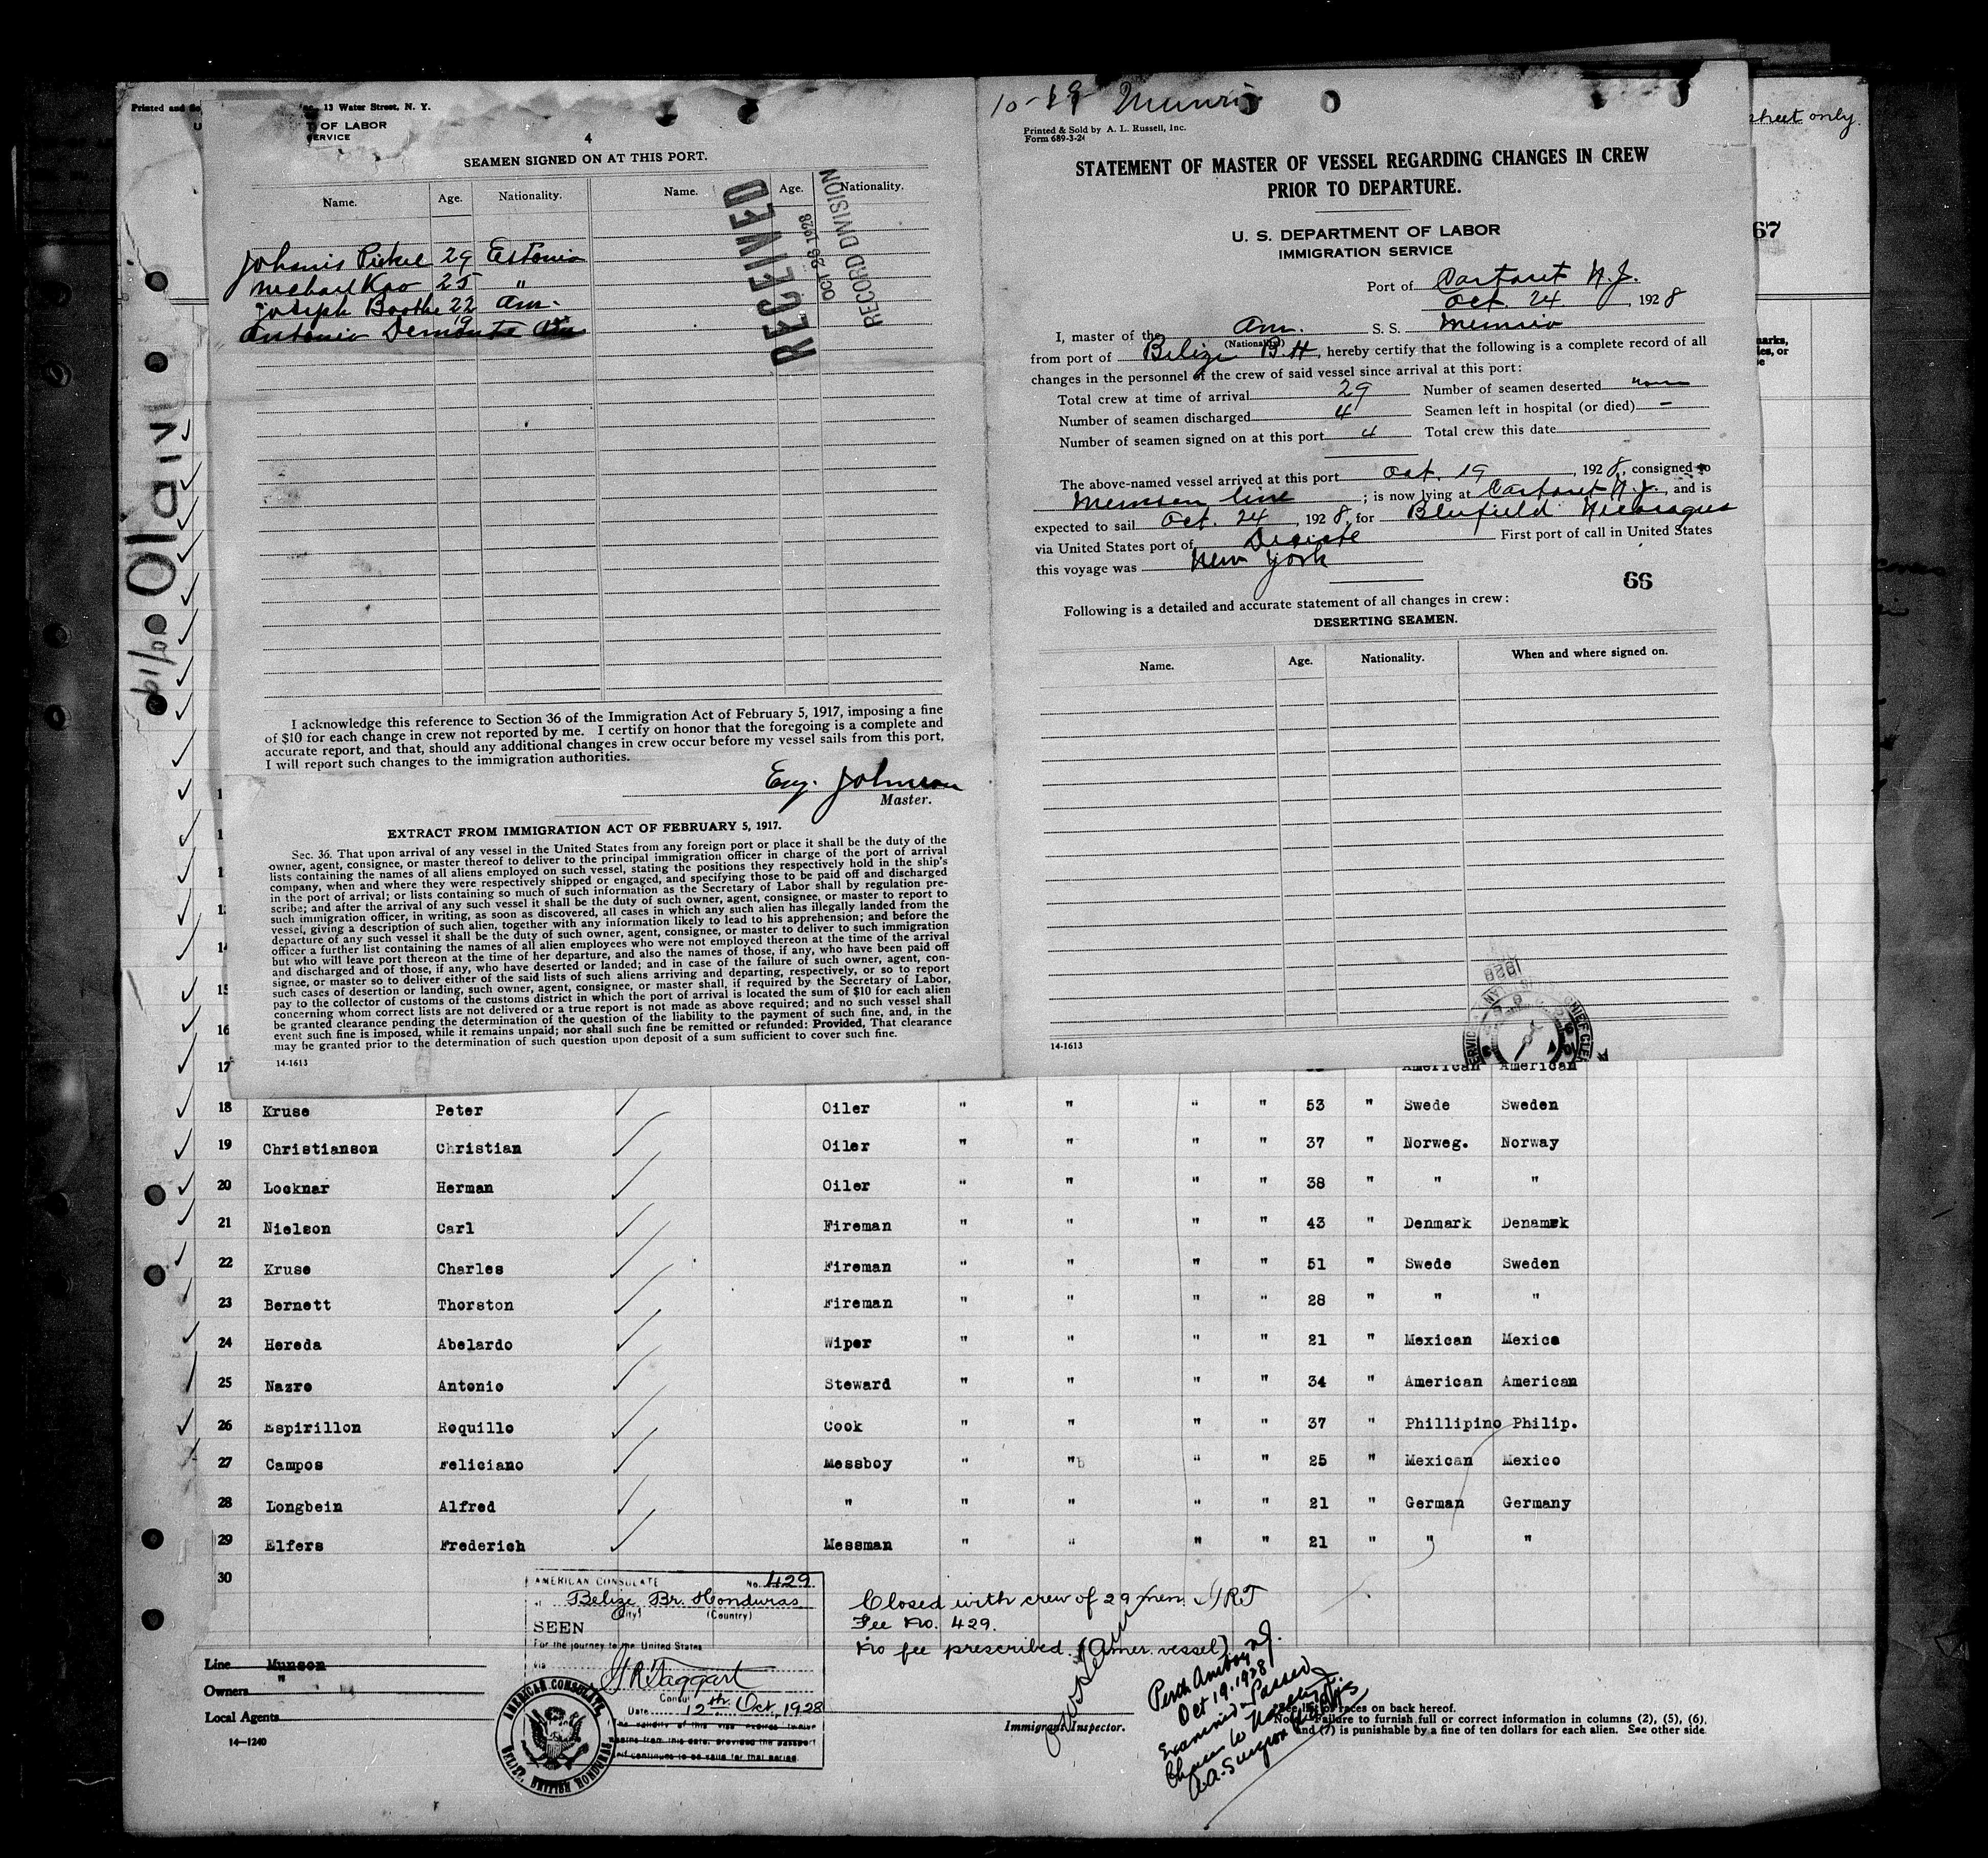 13 Water Street, N. Y.
OF LABOR
SERVICE
4
SEAMEN SIGNED ON AT THIS PORT.
Name. Age. Nationality. Name. Age. Nationality.
Johanis Pickel 29 Estonia
Michael Kao 25 "
Joseph Boothe 22 Am.
Antonio Demonte 19
RECEIVED
OCT 26 1928
RECORD DIVISION
I acknowledge this reference to Section 36 of the Immigration Act of February 5, 1917, imposing a fine
of $10 for each change in crew not reported by me. I certify on honor that the foregoing is a complete and
accurate report, and that, should any additional changes in crew occur before my vessel sails from this port,
I will report such changes to the immigration authorities.
Johnson
Master.
EXTRACT FROM IMMIGRATION ACT OF FEBRUARY 5, 1917.
Sec. 36. That upon arrival of any vessel in the United States from any foreign port or place it shall be the duty of the
owner, agent, consignee, or master thereof to deliver to the principal immigration officer in charge of the port of arrival
lists containing the names of all aliens employed on such vessel, stating the positions they respectively hold in the ship's
company, when and where they were respectively shipped or engaged, and specifying those to be paid off and discharged
in the port of arrival; or lists containing so much of such information as the Secretary of Labor shall by regulation pre-
scribe; and after the arrival of any such vessel it shall be the duty of such owner, agent, consignee, or master to report to
such immigration officer, in writing, as soon as discovered, all cases in which any such alien has illegally landed from the
vessel, giving a description of such alien, together with any information likely to lead to his apprehension; and before the
departure of any such vessel it shall be the duty of such owner, agent, consignee, or master to deliver to such immigration
officer a further list containing the names of all alien employees who were not employed thereon at the time of the arrival
but who will leave port thereon at the time of her departure, and also the names of those, if any, who have been paid off
and discharged and of those, if any, who have deserted or landed; and in case of the failure of such owner, agent, con-
signee, or master so to deliver either of the said lists of such aliens arriving and departing, respectively, or so to report
such cases of desertion or landing, such owner, agent, consignee, or master shall, if required by the Secretary of Labor,
pay to the collector of customs of the customs district in which the port of arrival is located the sum of $10 for each alien
concerning whom correct lists are not delivered or a true report is not made as above required; and no such vessel shall
be granted clearance pending the determination of the question of the liability to the payment of such fine, and, in the
event such fine is imposed, while it remains unpaid; nor shall such fine be remitted or refunded: Provided, That clearance
may be granted prior to the determination of such question upon deposit of a sum sufficient to cover such fine.
14-1613
10-19
Printed & Sold by A. L. Russell, Inc.
Form 689-3-24
STATEMENT OF MASTER OF VESSEL REGARDING CHANGES IN CREW
PRIOR TO DEPARTURE.
U. S. DEPARTMENT OF LABOR
IMMIGRATION SERVICE
Port of Cartaret N.J.
Oct. 24, 1928
I, master of the Am. S. S. Munrio
(Nationality)
from port of Belize B.H, hereby certify that the following is a complete record of all
changes in the personnel of the crew of said vessel since arrival at this port:
Total crew at time of arrival 29 Number of seamen deserted none
Number of seamen discharged 4 Seamen left in hospital (or died) -
Number of seamen signed on at this port 4 Total crew this date
The above-named vessel arrived at this port Oct. 19, 1928, consigned to
Munson line; is now lying at Cartaret N.J., and is
expected to sail Oct. 24, 1928, for Blufield Nicaragua
via United States port of Direct First port of call in United States
this voyage was New York
66
Following is a detailed and accurate statement of all changes in crew:
DESERTING SEAMEN.
Name. Age. Nationality. When and where signed on.
14-1613
sheet only.
67
17 American American
18 Kruse Peter Oiler " " " " 53 " Swede Sweden
19 Christianson Christian Oiler " " " " 37 " Norweg. Norway
20 Locknar Herman Oiler " " " " 38 " " "
21 Nielson Carl Fireman " " " " 43 " Denmark Denamrk
22 Kruse Charles Fireman " " " " 51 " Swede Sweden
23 Bernett Thorston Fireman " " " " 28 " " "
24 Hereda Abelardo Wiper " " " " 21 " Mexican Mexico
25 Nazro Antonio Steward " " " " 34 " American American
26 Espirillon Roquillo Cook " " " " 37 " Phillipino Philip.
27 Campos Feliciano Messboy " " " " 25 " Mexican Mexico
28 Longbein Alfred " " " " " 21 " German Germany
29 Elfers Frederich Messman " " " " 21 " " "
30
AMERICAN CONSULATE No. 429
at Belize Br. Honduras
(City) (Country)
SEEN
For the journey to the United States
Via
Taggart
Consul
Date 12th Oct, 1928
AMERICAN CONSULATE,
BELIZE, BRITISH HONDURAS
Closed with crew of 29 men. JRT
Fee No. 429.
No fee prescribed. (Amer. vessel)
Perth Amboy N.J.
Oct 19. 1928
Examined & Passed
A.A. Surgeon
Line Munson
Owners "
Local Agents
14—1240
Immigrant Inspector.
See list of races on back hereof.
Note.—Failure to furnish full or correct information in columns (2), (5), (6),
and (7) is punishable by a fine of ten dollars for each alien. See other side.